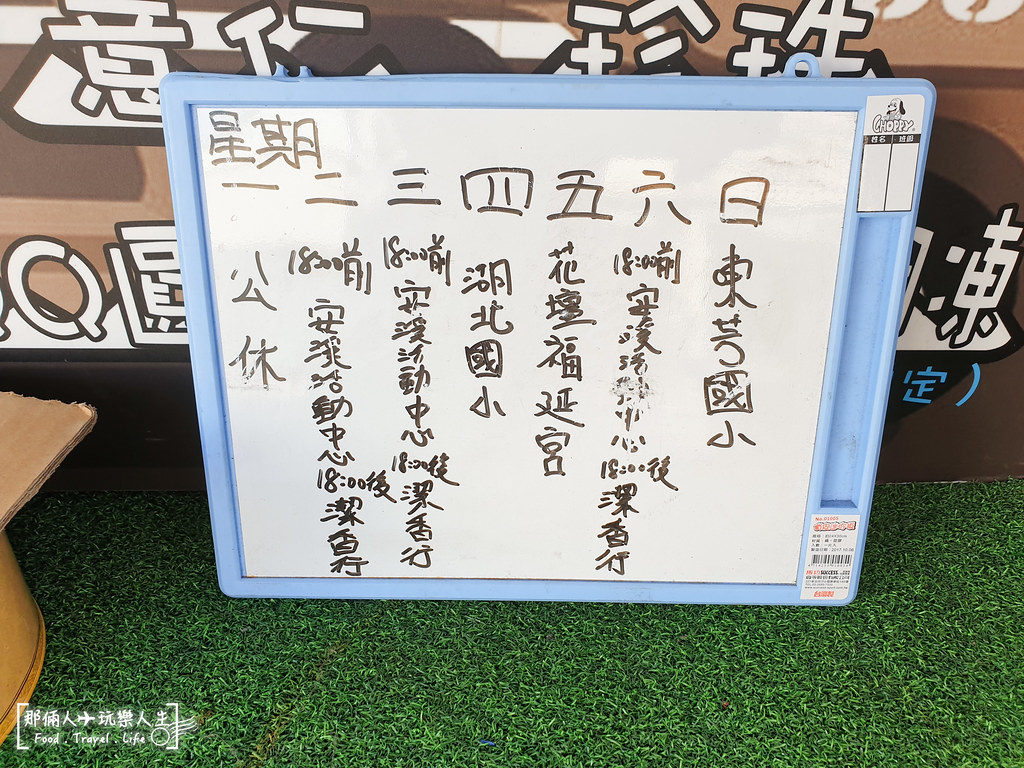 意仁 珍珠
QQ圓
凍
定)
星期
一 二 三 四 五 六 日
公休
18:00前
安溪活動中心
18:00後
潔香行
18:00前
安溪活動中心
18:00後
潔香行
湖北國小
花壇福延宮
18:00前
安溪活動中心
18:00後
潔香行
東芳國小
CHOPPY
姓名 班級
SUCCESS
台灣製
那倆人✈玩樂人生
Food . Travel . Life